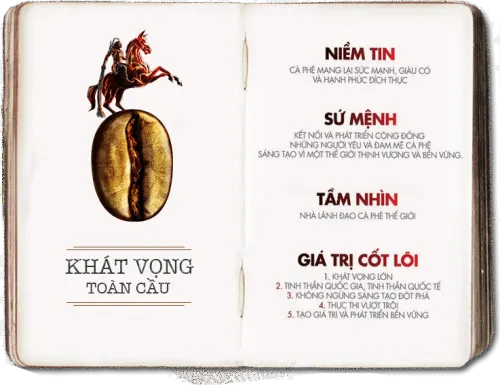 KHÁT VỌNG
TOÀN CẦU
NIỀM TIN
CÀ PHÊ MANG LẠI SỨC MẠNH, GIÀU CÓ
VÀ HẠNH PHÚC ĐÍCH THỰC
SỨ MỆNH
KẾT NỐI VÀ PHÁT TRIỂN CỘNG ĐỒNG
NHỮNG NGƯỜI YÊU VÀ ĐAM MÊ CÀ PHÊ
SÁNG TẠO VÌ MỘT THẾ GIỚI THỊNH VƯỢNG VÀ BỀN VỮNG.
TẦM NHÌN
NHÀ LÃNH ĐẠO CÀ PHÊ THẾ GIỚI
GIÁ TRỊ CỐT LÕI
1. KHÁT VỌNG LỚN
2. TINH THẦN QUỐC GIA, TINH THẦN QUỐC TẾ
3. KHÔNG NGỪNG SÁNG TẠO ĐỘT PHÁ
4. THỰC THI VƯỢT TRỘI
5. TẠO GIÁ TRỊ VÀ PHÁT TRIỂN BỀN VỮNG